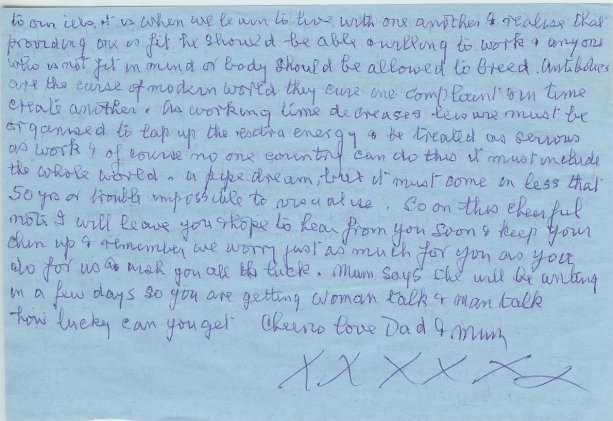 to our ideas, it is when we learn to live with one another & realise that
providing one is fit he should be able & willing to work & anyone
who is not fit in mind or body should be allowed to breed. Antibotics
are the curse of modern world they cure one complaint & in time
create another. As working time decreases leisure must be
organised to tap up the extra energy & be treated as serious
as work & of course no one country can do this it must include
the whole world. a pipe dream, but it must come in less that
50 yrs or trouble impossible to visualise. So on this cheerful
note I will leave you & hope to hear from you soon & keep your
chin up & remember we worry just as much for you as you
do for us & wish you all the luck. Mum says she will be writing
in a few days so you are getting woman talk & man talk
how lucky can you get Cheerio love Dad & Mum
X X X X X X